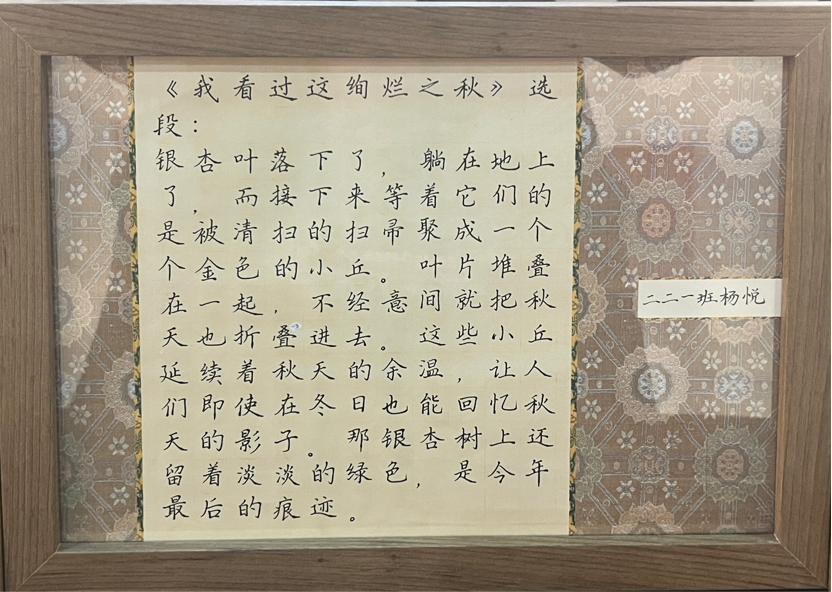 《我看过这绚烂之秋》选
段：
银杏叶落下了，躺在地上
了，而接下来等着它们的
是被清扫的扫帚聚成一个
个金色的小丘。叶片堆叠
在一起，不经意间就把秋
天也折叠进去。这些小丘
延续着秋天的余温，让人
们即使在冬日也能回忆秋
天的影子。那银杏树上还
留着淡淡的绿色，是今年
最后的痕迹。
二二一班杨悦